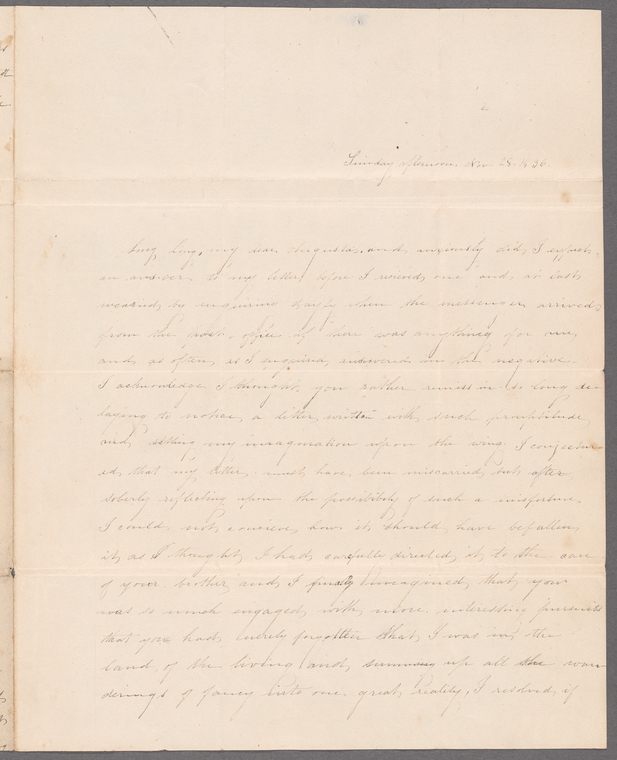 Sunday afternoon Nov 28. 1836.
Long, long, my dear Augusta, and anxiously did I expect
an answer to my letter before I received one and at last
wearied by enquiring daily when the messenger arrived
from the post-office if there was anything for me,
and as often as I enquired, answered in the negative.
I acknowledge I thought you rather remiss in so long de-
laying to notice a letter written with such promptitude
and setting my imagination upon the wing I conjectur-
ed that my letter must have been miscarried but after
soberly reflecting upon the possibility of such a misfortune
I could not conceive how it should have befallen
it, as I thought I had carefully directed it to the care
of your brother and I finally imagined that you
was so much engaged with more interesting pursuits
that you had entirely forgotten that I was in the
land of the living and summing up all the wan-
derings of fancy into one great reality, I resolved if